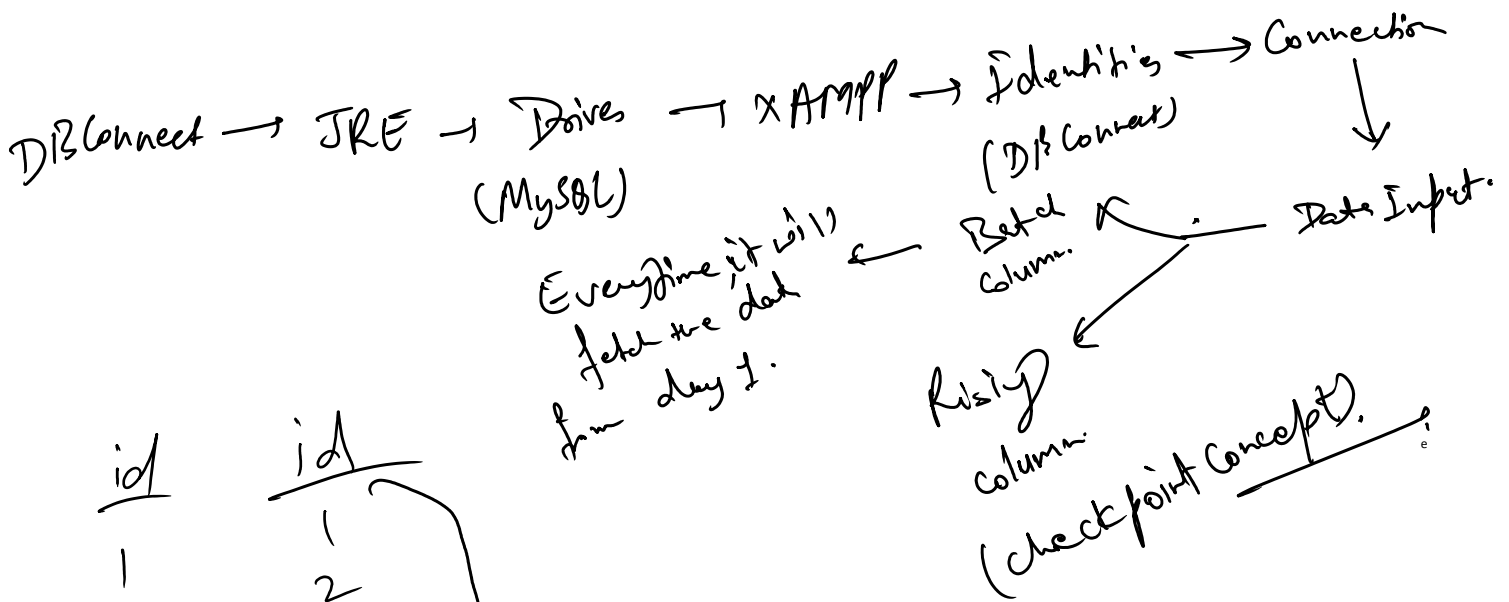 DBConnect → JRE → Drives → XAMPP → Identities → Connection
(MySQL)
(DBConnect)
Data Input.
Batch
column.
Everytime, it will
fetch the data
from day 1.
Rising
column.
(checkpoint Concept).
e
id id
1 1
2